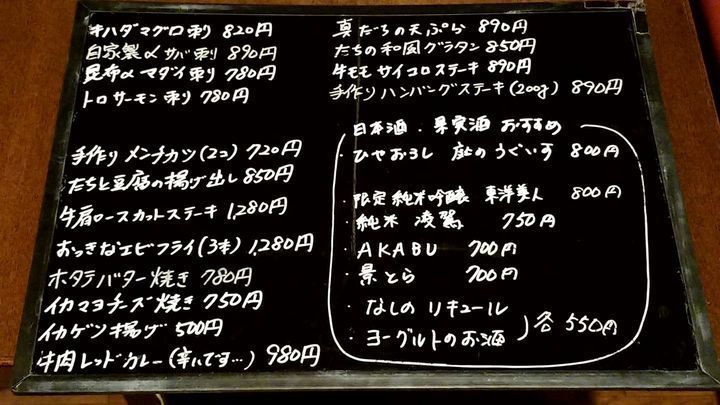 キハダマグロ刺り 820円
自家製〆サバ刺り 890円
昆布〆マダイ刺り 780円
トロサーモン刺り 780円
手作りメンチカツ(2コ) 720円
たちと豆腐の揚げ出し 850円
牛肩ロースカットステーキ 1,280円
おっきなエビフライ(3本) 1,280円
ホタテバター焼き 780円
イカマヨチーズ焼き 750円
イカゲソ揚げ 500円
牛肉レッドカレー(辛いです…) 980円
真だちの天ぷら 890円
たちの和風グラタン 850円
牛モモサイコロステーキ 890円
手作りハンバーグステーキ(200g) 890円
日本酒・果実酒 おすすめ
・ひやおろし 庭のうぐいす 800円
・限定純米吟醸 東洋美人 800円
・純米 凌駕 750円
・AKABU 700円
・景とら 700円
・なしのリキュール
・ヨーグルトのお酒 各 550円